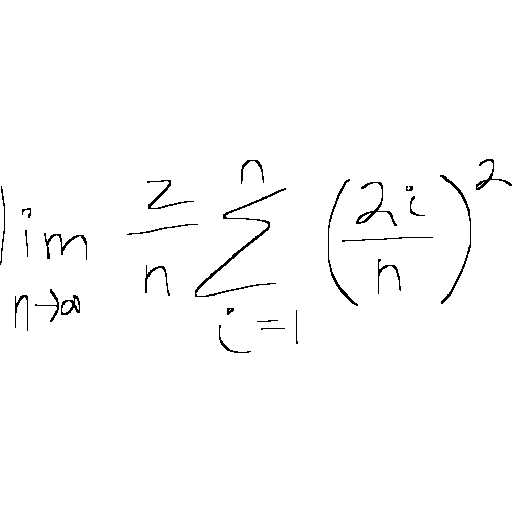 \lim_{n \to \infty} \frac{2}{n} \sum_{i=1}^{n} \left( \frac{2i}{n} \right)^2